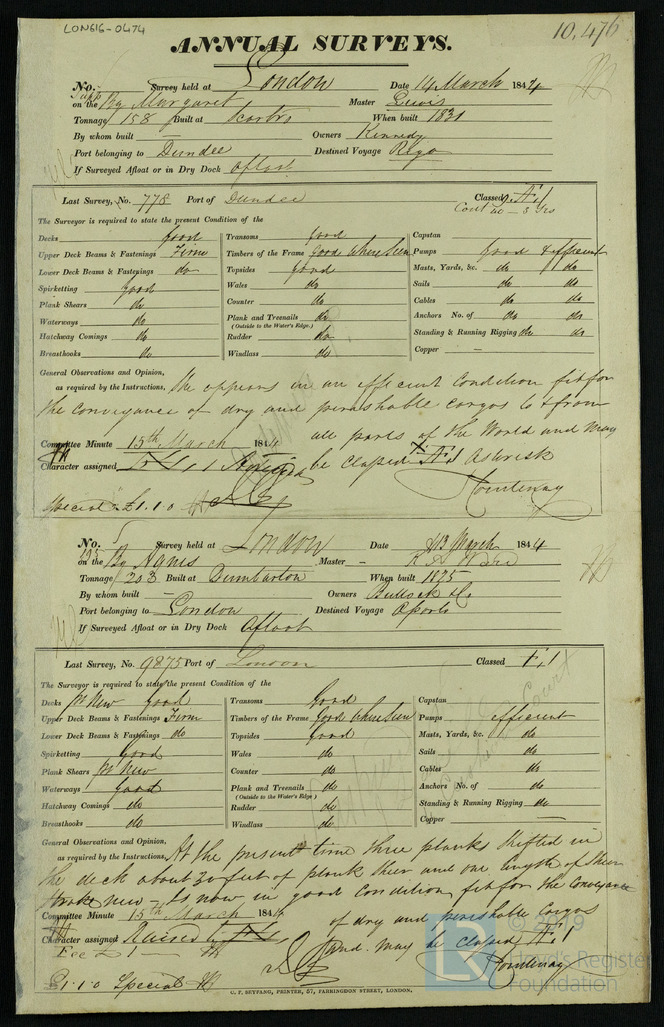 LON616-0474
10,476
ANNUAL SURVEYS.
No. Survey held at London Date 14 March 1844
on the Bg Margaret Master Lewis
Tonnage 158 Built at When built 1831
By whom built — Owners Kennedy
Port belonging to Dundee Destined Voyage Riga
If Surveyed Afloat or in Dry Dock Afloat
Last Survey, No. 778 Port of Dundee Classed Æ 1
Cont 40 — 3 Yrs
The Surveyor is required to state the present Condition of the
Decks Good Transoms Good Capstan
Upper Deck Beams & Fastenings Firm Timbers of the Frame Good Where Seen Pumps Good & efficient
Lower Deck Beams & Fastenings do Topsides Good Masts, Yards, &c. do do
Spirketting Good Wales do Sails do do
Plank Shears do Counter do Cables do do
Waterways do Plank and Treenails do Anchors No. of do do
(Outside to the Water's Edge.)
Hatchway Comings do Rudder do Standing & Running Rigging do do
Breasthooks do Windlass do Copper
General Observations and Opinion,
as required by the Instructions, She appears in an efficient Condition fit for
the conveyance of dry and perishable cargos to & from
all parts of the World and may
Committee Minute 15th March 1844
be classed Æ 1 Asterisk
Character assigned
Courtenay
Special £1.1.0
No. Survey held at London Date 13 March 1844
on the Bg Agnes Master — Ward
Tonnage 203 Built at Dumbarton When built 1825
By whom built — Owners Bullock & Co
Port belonging to London Destined Voyage Oporto
If Surveyed Afloat or in Dry Dock Afloat
Last Survey, No. 9875 Port of London Classed Æ 1
The Surveyor is required to state the present Condition of the
Decks Pt New Good Transoms Good Capstan
Upper Deck Beams & Fastenings Firm Timbers of the Frame Good Where Seen Pumps efficient
Lower Deck Beams & Fastenings do Topsides Good Masts, Yards, &c. do
Spirketting Good Wales do Sails do
Plank Shears Pt New Counter do Cables do
Waterways Good Plank and Treenails do Anchors No. of do
(Outside to the Water's Edge.)
Hatchway Comings do Rudder do Standing & Running Rigging do
Breasthooks do Windlass do Copper —
General Observations and Opinion,
as required by the Instructions, At the present time three planks shifted in
the deck about 30 feet of plank sheer and one length of sheer
strake new — Is now in good condition fit for the conveyance
of dry and perishable cargos
Committee Minute 15th March 1844
and may be classed Æ 1
Character assigned
Courtenay
Fee £1 —
£1.1.0 Special
C. F. SEYFANG, PRINTER, 57, FARRINGDON STREET, LONDON.
© 2019
LR
Lloyd's Register
Foundation